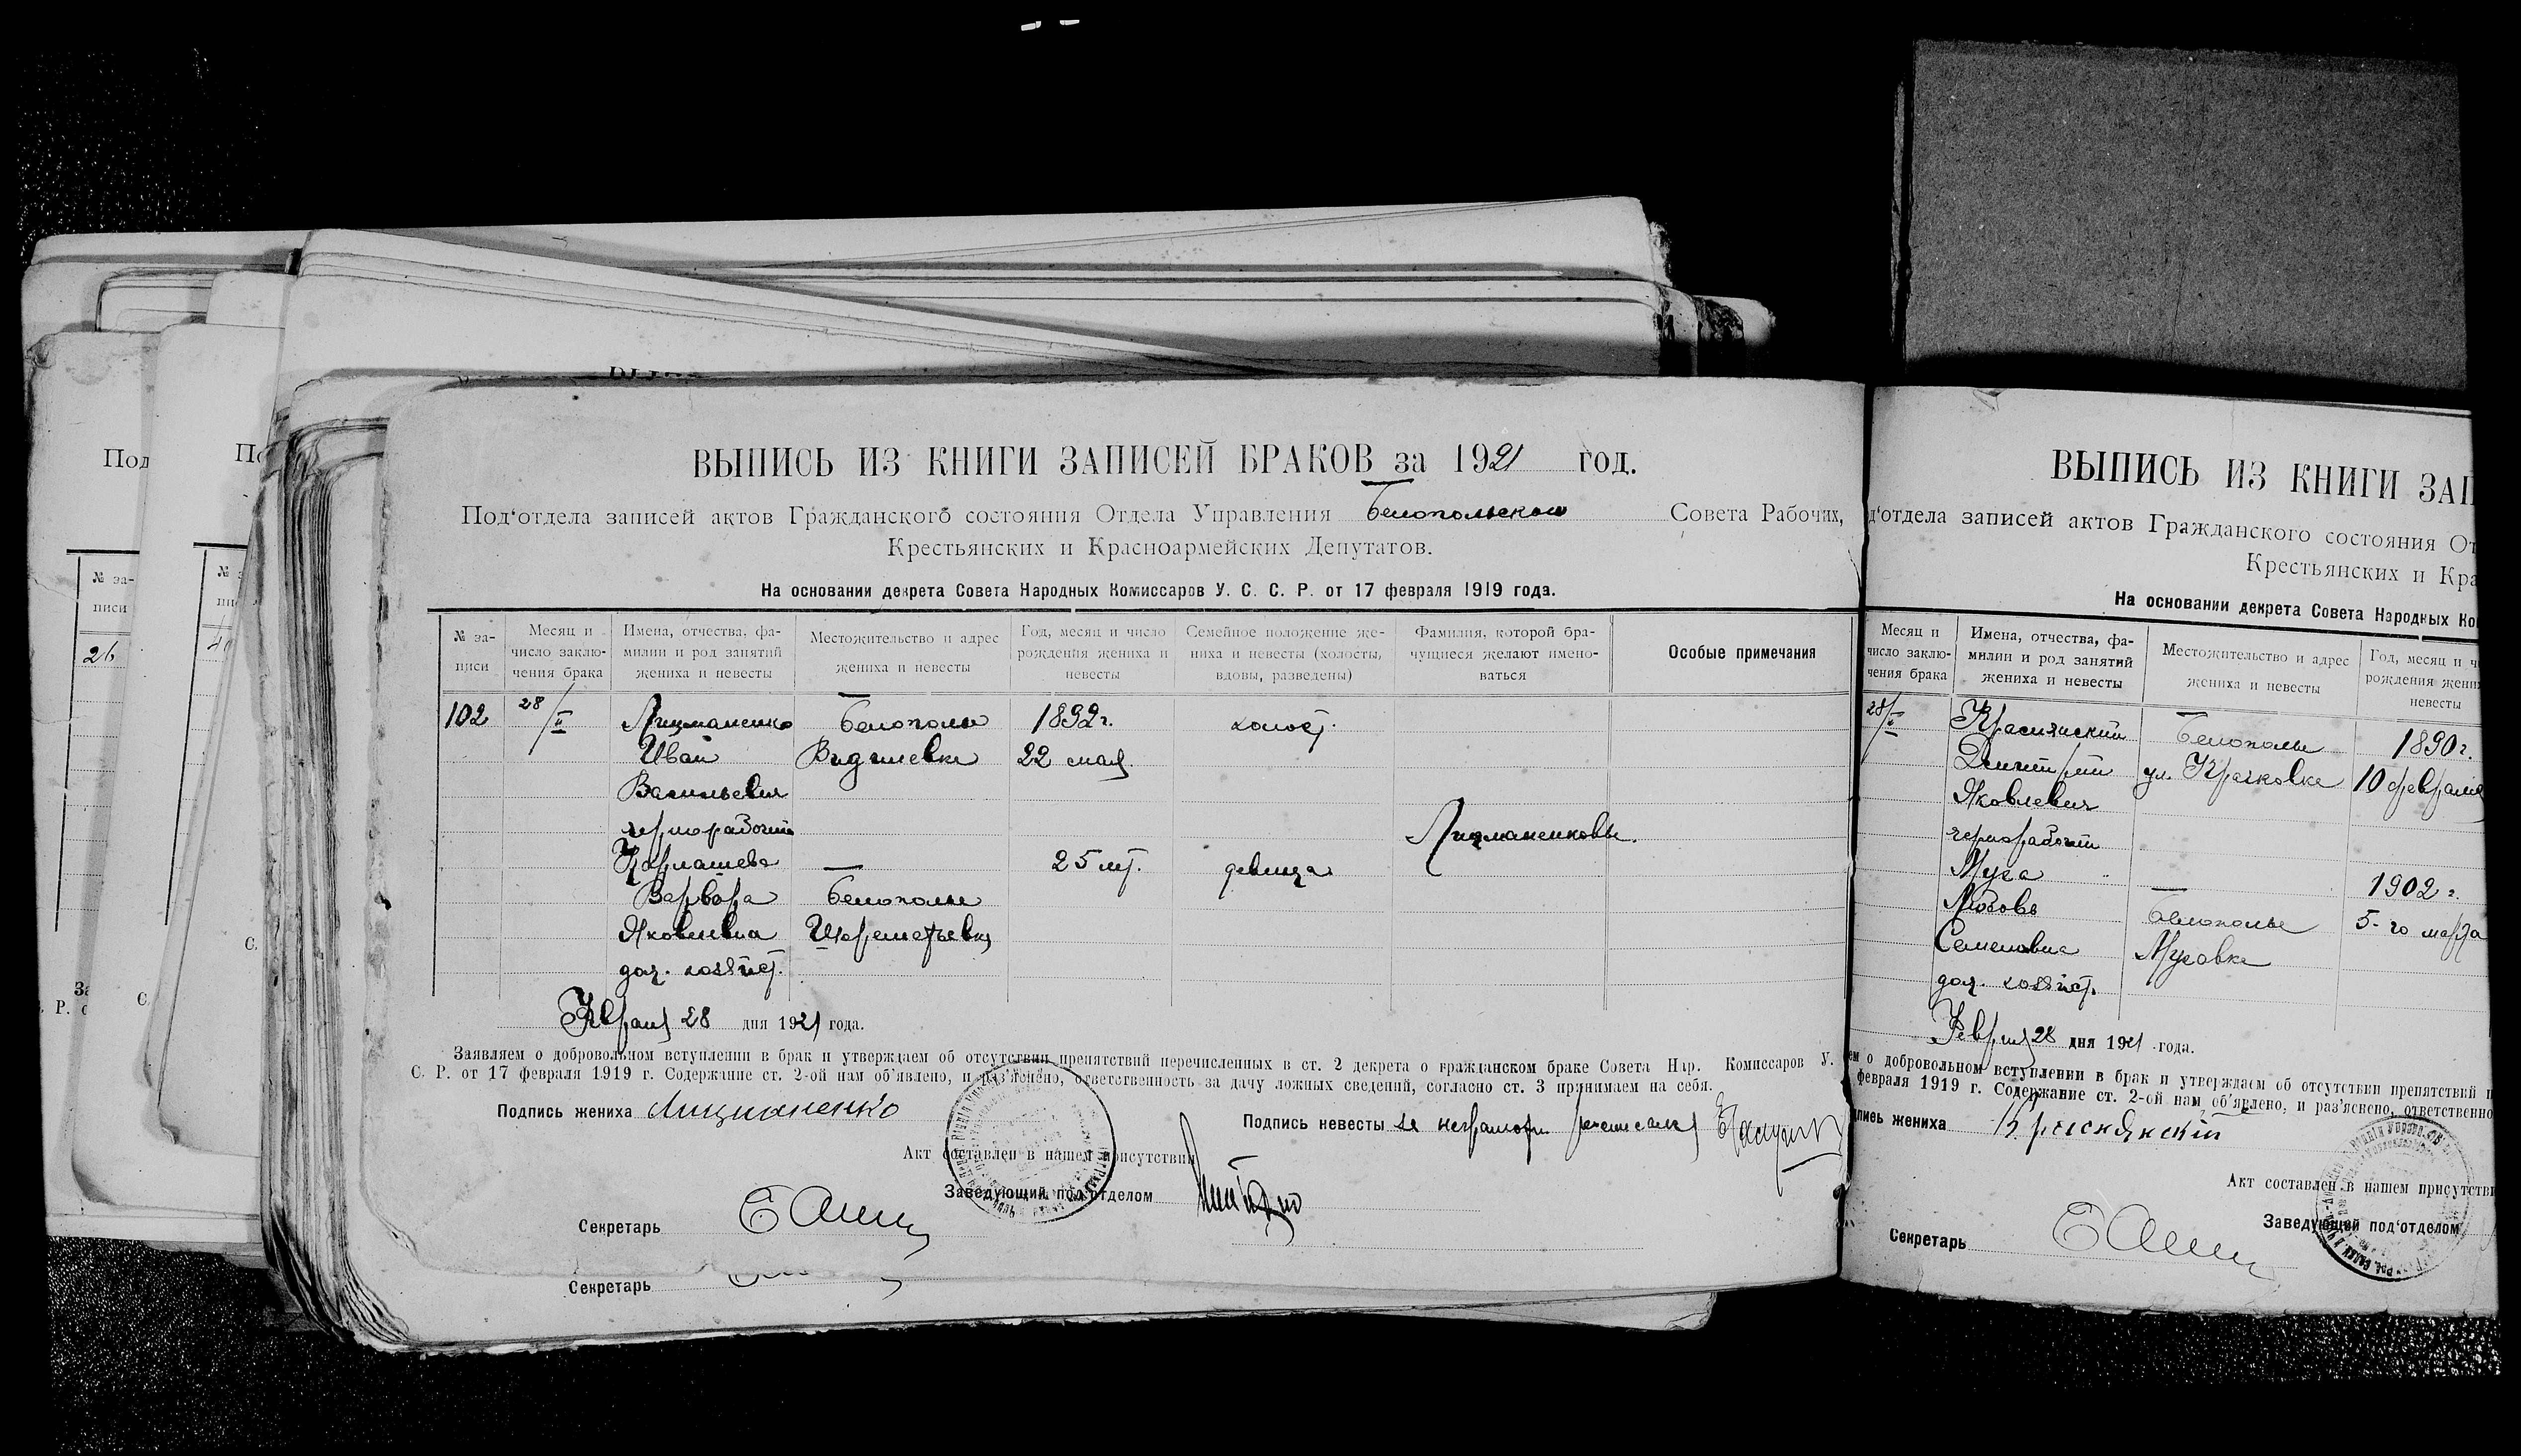 ВЫПИСЬ ИЗ КНИГИ ЗАПИСЕЙ БРАКОВ за 1921 год.
Под‘отдела записей актов Гражданского состояния Отдела Управления Белопольского Совета Рабочих,
Крестьянских и Красноармейских Депутатов.
На основании декрета Совета Народных Комиссаров У. С. С. Р. от 17 февраля 1919 года.
№ за-
писи
Месяц и
число заклю-
чения брака
Имена, отчества, фа-
милии и род занятий
жениха и невесты
Местожительство и адрес
жениха и невесты
Год, месяц и число
рождения жениха и
невесты
Семейное положение же-
ниха и невесты (холосты,
вдовы, разведены)
Фамилия, которой бра-
чущиеся желают имено-
ваться
Особые примечания
102 28/II Лицманенко Белополье 1892 г. холост.
Иван 22 мая
Васильевич
чернорабочий Лицманенковы.
Карпашева 25 лет. девица
Варвара Белополье
Яковлевна Шереметьевка
дом. хозяйст.
Февраля 28 дня 1921 года.
Заявляем о добровольном вступлении в брак и утверждаем об отсутствии препятствий перечисленных в ст. 2 декрета о гражданском браке Совета Нар. Комиссаров У.
С. Р. от 17 февраля 1919 г. Содержание ст. 2-ой нам об‘явлено, и раз‘яснено, ответственность за дачу ложных сведений, согласно ст. 3 принимаем на себя.
Подпись жениха Лицманенко
Подпись невесты за неграмотн
Акт составлен в нашем присутствии
Заведующий под‘отделом
Секретарь
Секретарь
ВЫПИСЬ ИЗ КНИГИ ЗАП
д‘отдела записей актов Гражданского состояния От
Крестьянских и Кра
На основании декрета Совета Народных Ко
Месяц и
число заклю-
чения брака
Имена, отчества, фа-
милии и род занятий
жениха и невесты
Местожительство и адрес
жениха и невесты
Год, месяц и ч
рождения жени
невесты
28/II Краснянский Белополье 1890 г.
Дмитрий ул. Крачковка 10 февраля
Яковлевич
чернорабочий
Муха 1902 г.
Любовь Белополье 5-го марта
Семеновна Муховка
дом. хозяйст.
Февраля 28 дня 1921 года.
ем о добровольном вступлении в брак и утверждаем об отсутствии препятствий п
февраля 1919 г. Содержание ст. 2-ой нам об‘явлено, и раз‘яснено, ответственно
пись жениха Краснянский
Акт составлен в нашем присутстви
Заведующий под‘отделом
Секретарь
Под
№ за-
писи
26